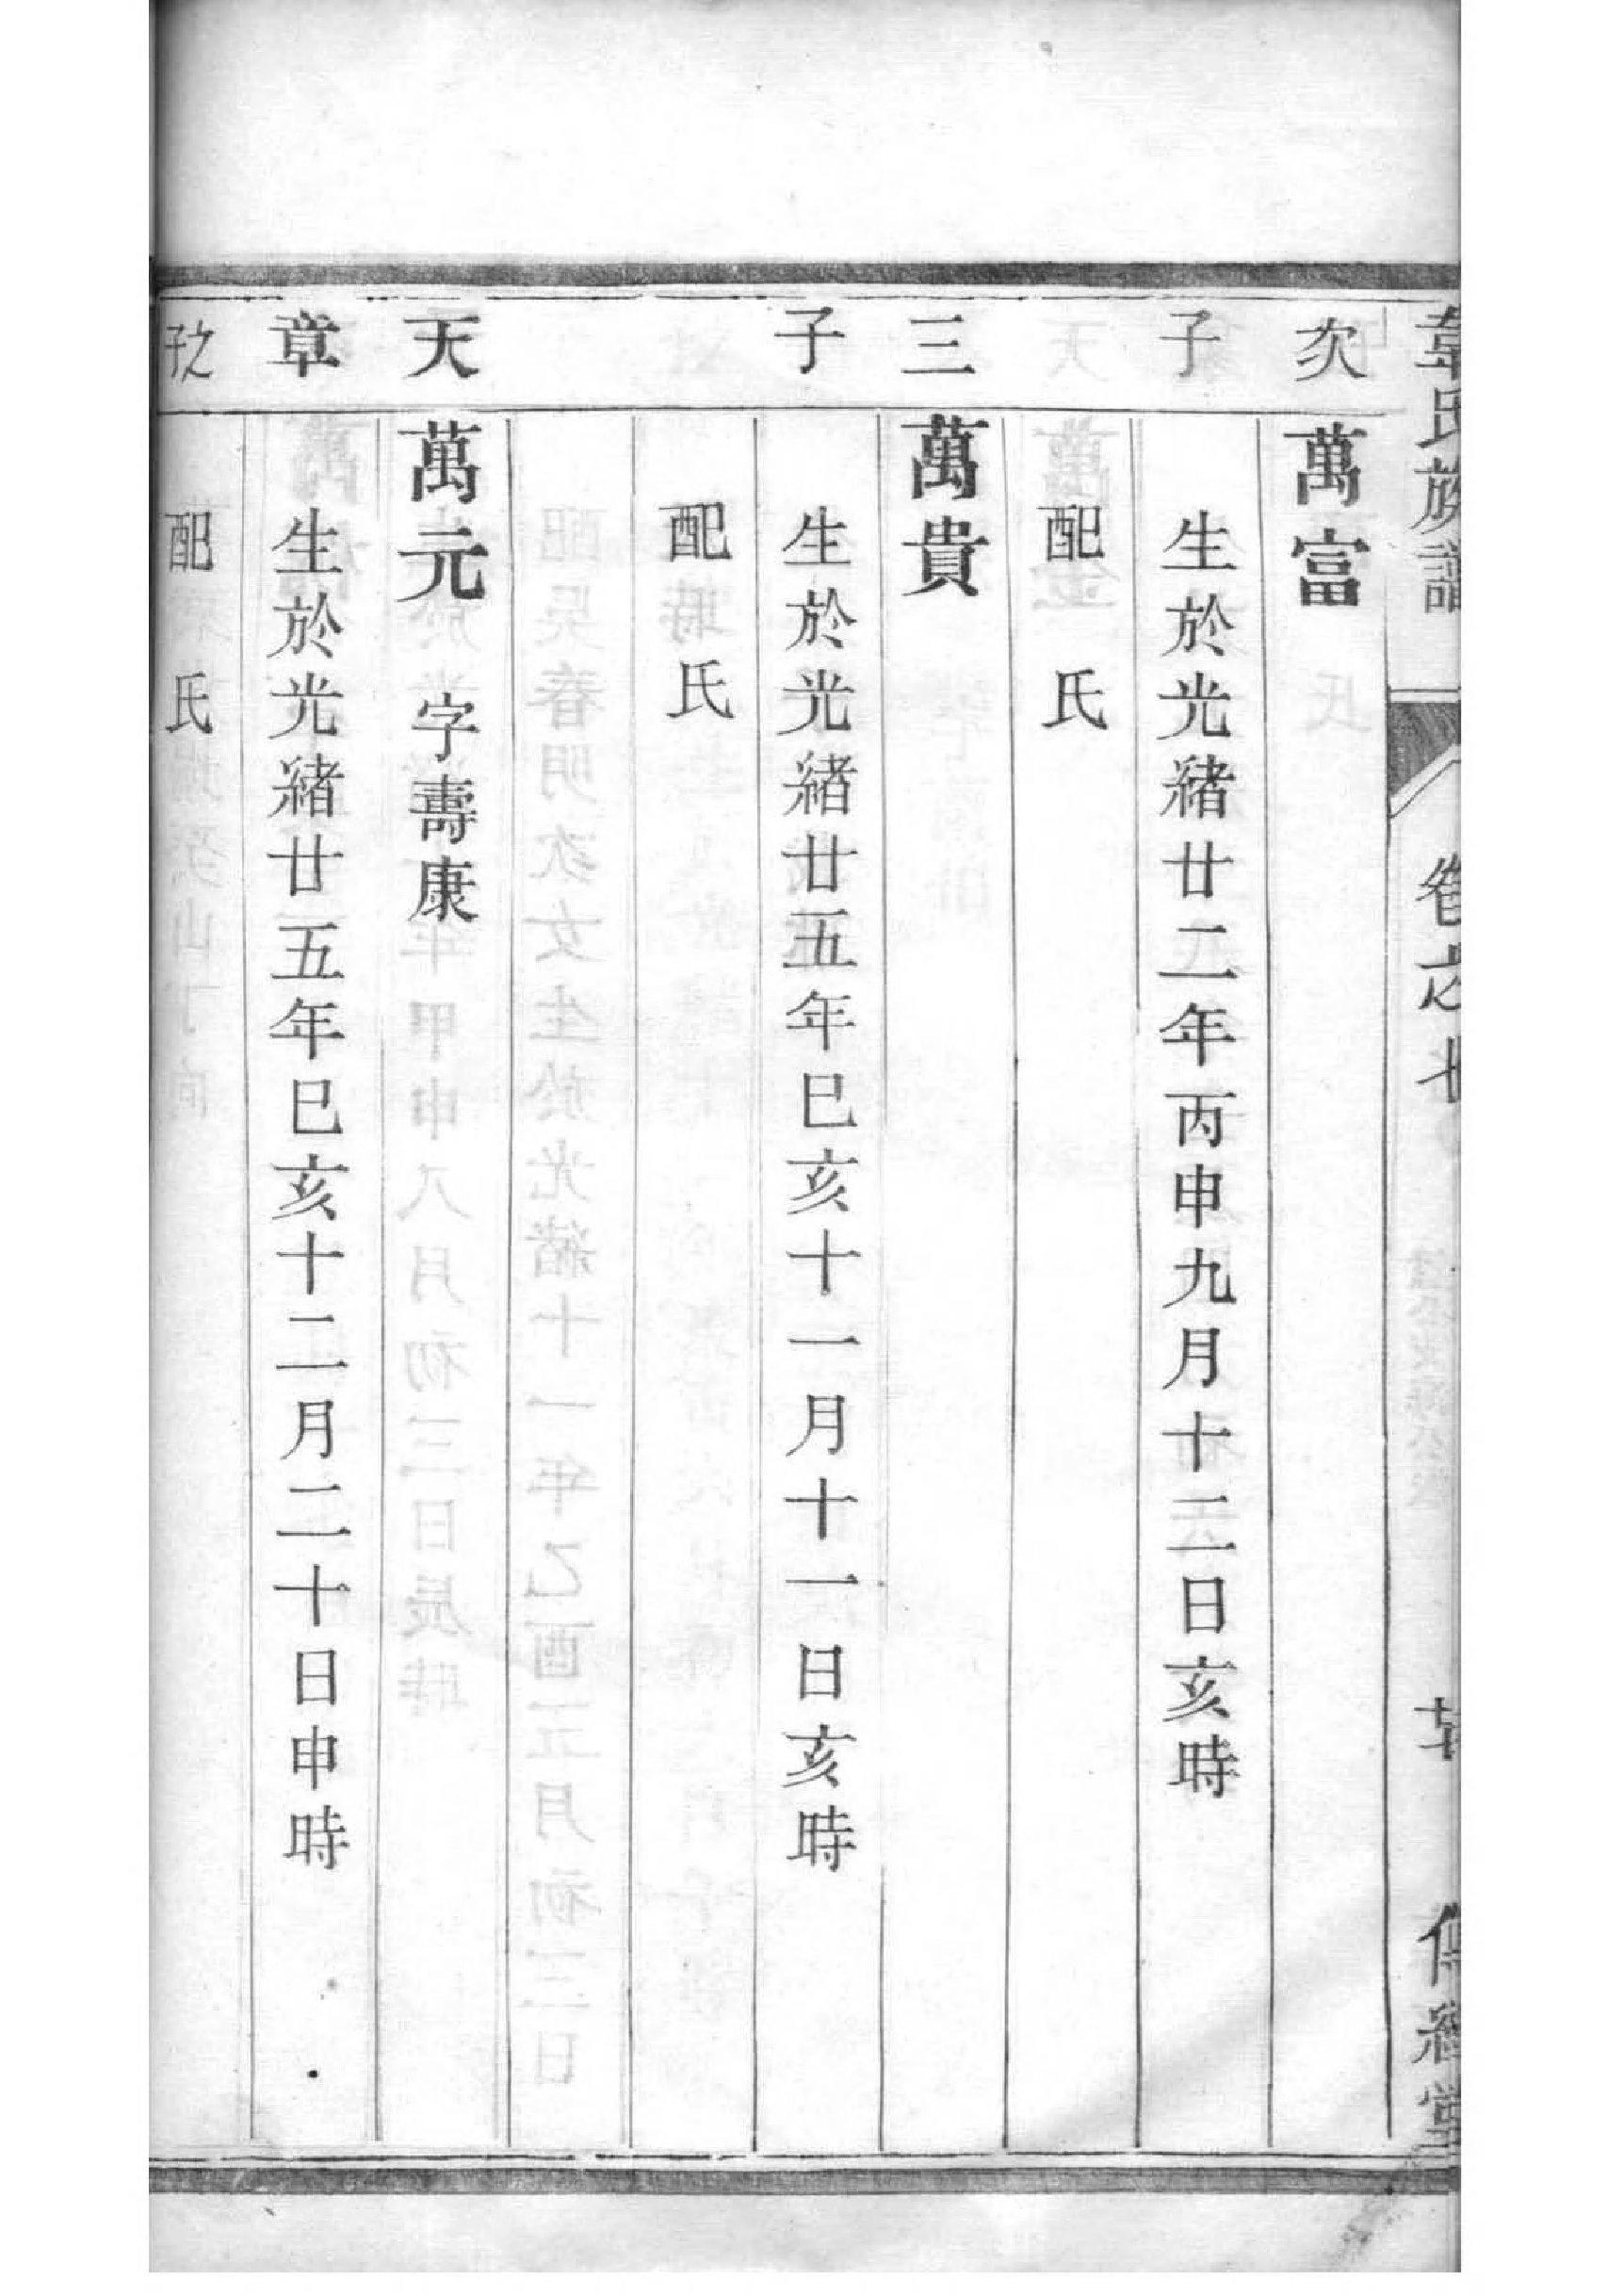 韋氏族譜 卷之七 傳經堂
次 萬富
子 生於光緒廿二年丙申九月十二日亥時
配 氏
三 萬貴
子 生於光緒廿五年巳亥十一月十一日亥時
配 氏
天 萬元 字壽康
章 生於光緒廿五年巳亥十二月二十日申時
之子 配 氏